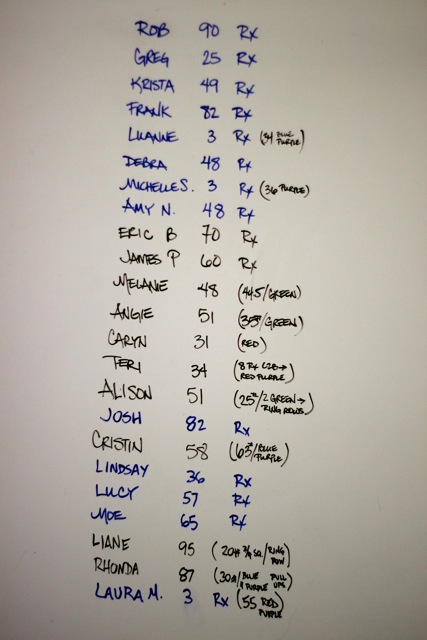 ROB 90 Rx
GREG 25 Rx
KRISTA 49 Rx
FRANK 82 Rx
LUANNE 3 Rx (34 BLUE PURPLE)
DEBRA 48 Rx
MICHELLE S. 3 Rx (36 PURPLE)
AMY N. 48 Rx
ERIC B 70 Rx
JAMES P 60 Rx
MELANIE 48 (445/GREEN)
ANGIE 51 (35#/GREEN)
CARYN 31 (RED)
TERI 34 (8 Rx C2B→ RED PURPLE)
ALISON 51 (25#/2 GREEN→ RING ROWS)
JOSH 82 Rx
CRISTIN 58 (63#/BLUE PURPLE)
LINDSAY 36 Rx
LUCY 57 Rx
MOE 65 Rx
LIANE 95 (20# 3/4 SQ./RING ROW)
RHONDA 87 (30#/BLUE PURPLE PULL UPS)
LAURA M. 3 Rx (55 RED PURPLE)